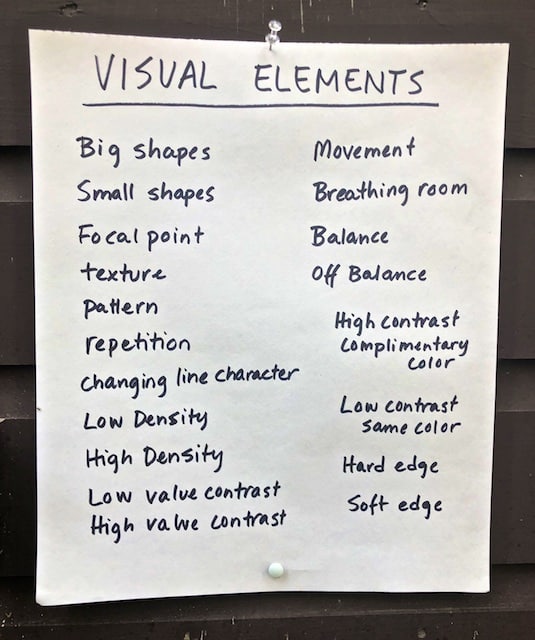 VISUAL ELEMENTS
Big shapes
Small shapes
Focal point
texture
pattern
repetition
changing line character
Low Density
High Density
Low value contrast
High value contrast
Movement
Breathing room
Balance
Off Balance
High contrast
complimentary
color
Low contrast
same color
Hard edge
Soft edge